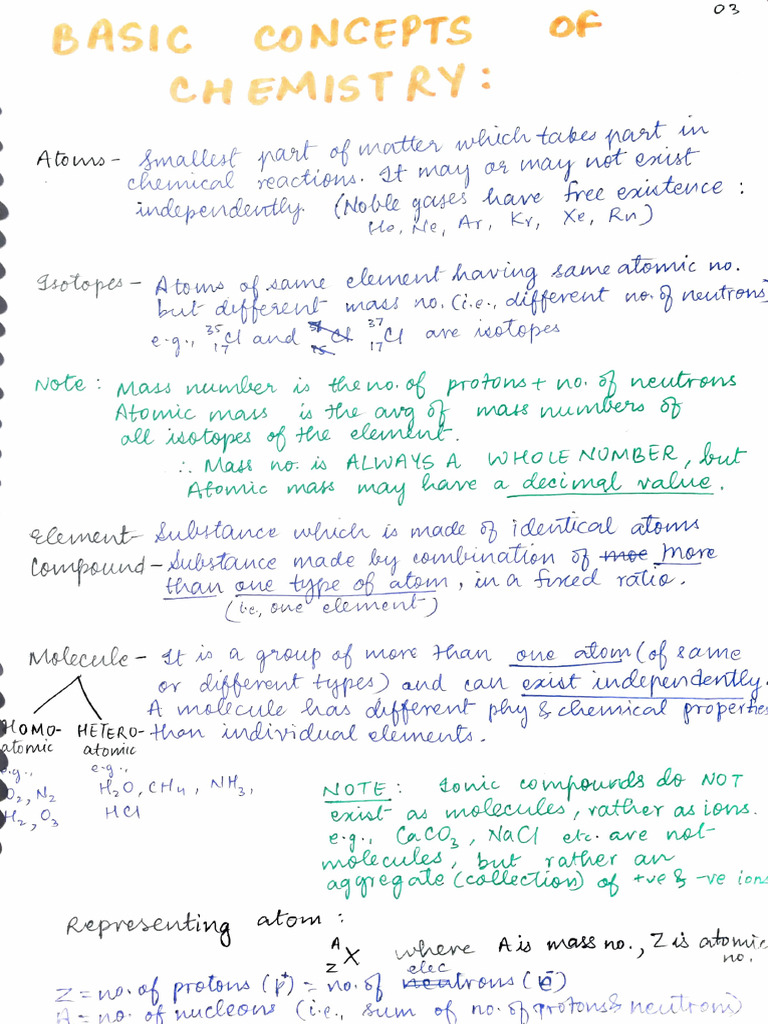 03
BASIC CONCEPTS OF
CHEMISTRY:
Atoms - Smallest part of matter which takes part in
chemical reactions. It may or may not exist
independently. (Noble gases have free existence :
He, Ne, Ar, Kr, Xe, Rn)
Isotopes - Atoms of same element having same atomic no.
but different mass no. (i.e., different no. of neutrons)
e.g., ³⁵₁₇Cl and ³⁷₁₇Cl are isotopes
Note : Mass number is the no. of protons + no. of neutrons
Atomic mass is the avg of mass numbers of
all isotopes of the element.
∴ Mass no. is ALWAYS A WHOLE NUMBER, but
Atomic mass may have a decimal value.
Element - Substance which is made of identical atoms
Compound - Substance made by combination of more
than one type of atom, in a fixed ratio.
(i.e., one element)
Molecule - It is a group of more than one atom (of same
or different types) and can exist independently.
A molecule has different phy & chemical properties
than individual elements.
HOMO-atomic
e.g.,
O₂, N₂
H₂, O₃
HETERO-atomic
e.g.,
H₂O, CH₄, NH₃,
HCl
NOTE : Ionic compounds do NOT
exist as molecules, rather as ions.
e.g., CaCO₃, NaCl etc. are not
molecules, but rather an
aggregate (collection) of +ve & -ve ions
Representing atom :
ᴬ_Z X where A is mass no., Z is atomic
no.
Z = no. of protons (p⁺) = no. of electrons (e⁻)
A = no. of nucleons (i.e., sum of no. of protons & neutrons)